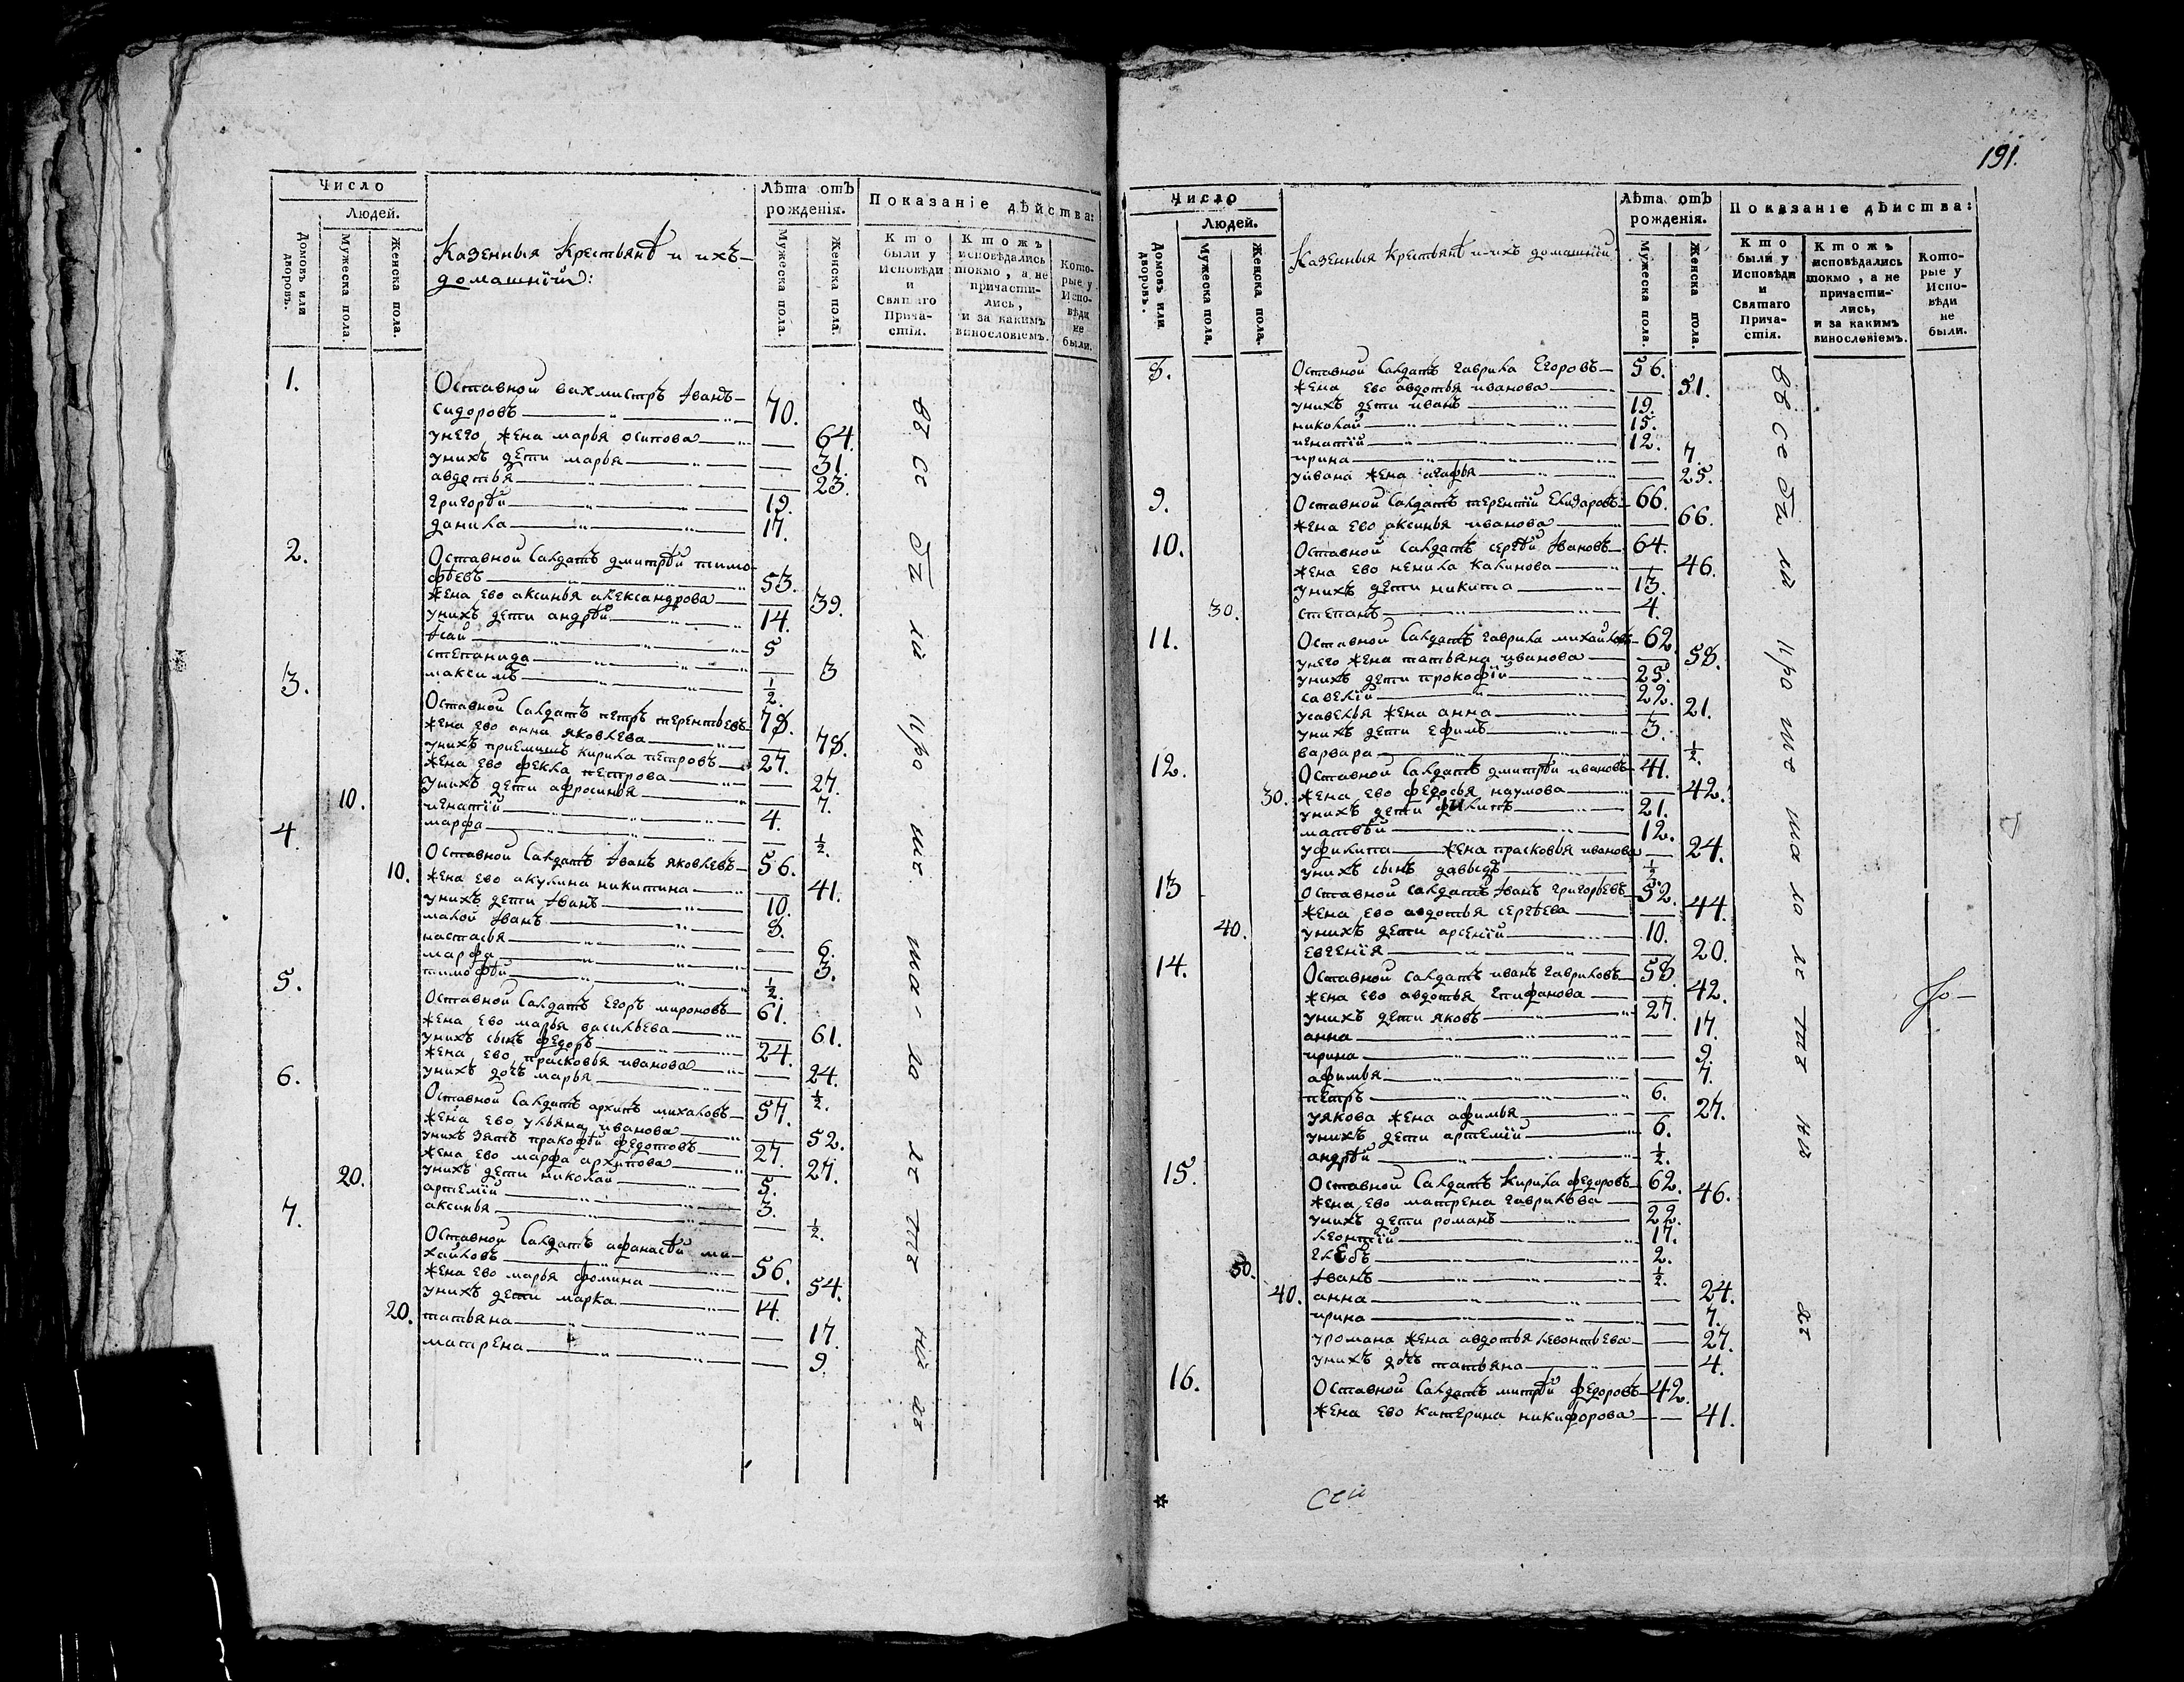 Число
Людей.
Домовъ или дворовъ.
Мужеска пола.
Женска пола.
Казенныя крестьянѣ и ихъ
домашнїи:
Лѣта отъ рожденія.
Мужеска пола.
Женска пола.
Показаніе дѣйства:
Кто были у Исповѣди и Святаго Причастія.
Ктожъ исповѣдались токмо, а не причастились, и за какимъ винословіемъ.
Которые у Исповѣди не были.
1. Оставной вахмистръ Iванъ
сидоровъ 70.
унего жена марья осипова 64.
унихъ дети марья 31.
авдотья 23.
григорѣй 19.
данила 17.
2. Оставной Салдатъ дмитрѣй тимо
фѣевъ 53.
жена ево аксинья александрова 39.
унихъ дети андрѣй 14.
Iсай 5
степанида 3
максимъ 1/2.
3. Оставной Салдатъ петръ терентьевъ 78.
жена ево анна яковлева 78.
унихъ приемышъ кирила петровъ 27.
жена ево фекла петрова 27.
унихъ дети афросинья 7.
10. игнатїй 4.
марфа 1/2.
4. Оставной Салдатъ Iванъ яковлевъ 56.
10. жена ево акулина никитина 41.
унихъ дети Iванъ 10.
малой Iванъ 8.
настасья 6.
марфа 3.
тимофѣй 1/2.
5. Оставной Салдатъ Егоръ мироновъ 61.
жена ево марья васильева 61.
унихъ сынъ федоръ 24.
жена ево прасковья иванова 24.
унихъ дочь марья 1/2.
6. Оставной Салдатъ архипъ михаловъ 57.
жена ево ульяна иванова 52.
унихъ зять пракофѣй федотовъ 27.
жена ево марфа архипова 27.
20. унихъ дети николай 5.
артемїй 3.
аксинья 1/2.
7. Оставной Салдатъ афанасѣй ми
хайловъ 56.
жена ево марья фомина 54.
унихъ дети марка 14.
20. татьяна 17.
матрена 9.
191.
Число
Людей.
Домовъ или дворовъ.
Мужеска пола.
Женска пола.
Казенныя крестьянѣ и ихъ домашнїи
Лѣта отъ рожденія.
Мужеска пола.
Женска пола.
Показаніе дѣйства:
Кто были у Исповѣди и Святаго Причастія.
Ктожъ исповѣдались токмо, а не причастились, и за какимъ винословіемъ.
Которые у Исповѣди не были.
8. Оставной Салдатъ гаврила Егоровъ 56.
жена ево авдотья иванова 51.
унихъ дети иванъ 19.
николай 15.
игнатїй 12.
ирина 7.
уивана жена агафья 25.
9. Оставной Салдатъ терентїй Елизаровъ 66.
жена ево аксинья иванова 66.
10. Оставной Салдатъ сергѣй Iвановъ 64.
жена ево ненила калинова 46.
унихъ дети никита 13.
30. степанъ 4.
11. Оставной Салдатъ гаврила михайловъ 62
унего жена татьяна иванова 58.
унихъ дети прокофїй 25.
савелїй 22.
усавелья жена анна 21.
унихъ дети Ефимъ 3.
варвара 1/2.
12. Оставной Салдатъ дмитрѣй ивановъ 41.
30. жена ево федосья наумова 42.
унихъ дети филипъ 21.
матвѣй 12.
уфилипа жена прасковья иванова 24.
унихъ сынъ давыдъ 1/2
13 Оставной Салдатъ Iванъ григорьевъ 52.
жена ево авдотья сергѣева 44.
40. унихъ дети арсенїй 10.
Евгенїя 20.
14. Оставной Салдатъ иванъ гавриловъ 58.
жена ево авдотья Епифанова 42.
унихъ дети яковъ 27.
анна 17.
ирина 9.
афимья 7.
петръ 6.
уякова жена афимья 27.
унихъ дети артемїй 6.
андрѣй 1/2.
15. Оставной Салдатъ кирила федоровъ 62.
жена ево матрена гаврилова 46.
унихъ дети романъ 22.
леонтїй 17.
глебъ 2.
50. Iванъ 1/2.
40. анна 24.
ирина 7.
уромана жена авдотья левонтьева 27.
унихъ дочь татьяна 4.
16. Оставной Салдатъ митрѣй федоровъ 42.
жена ево катерина никифорова 41.
сей